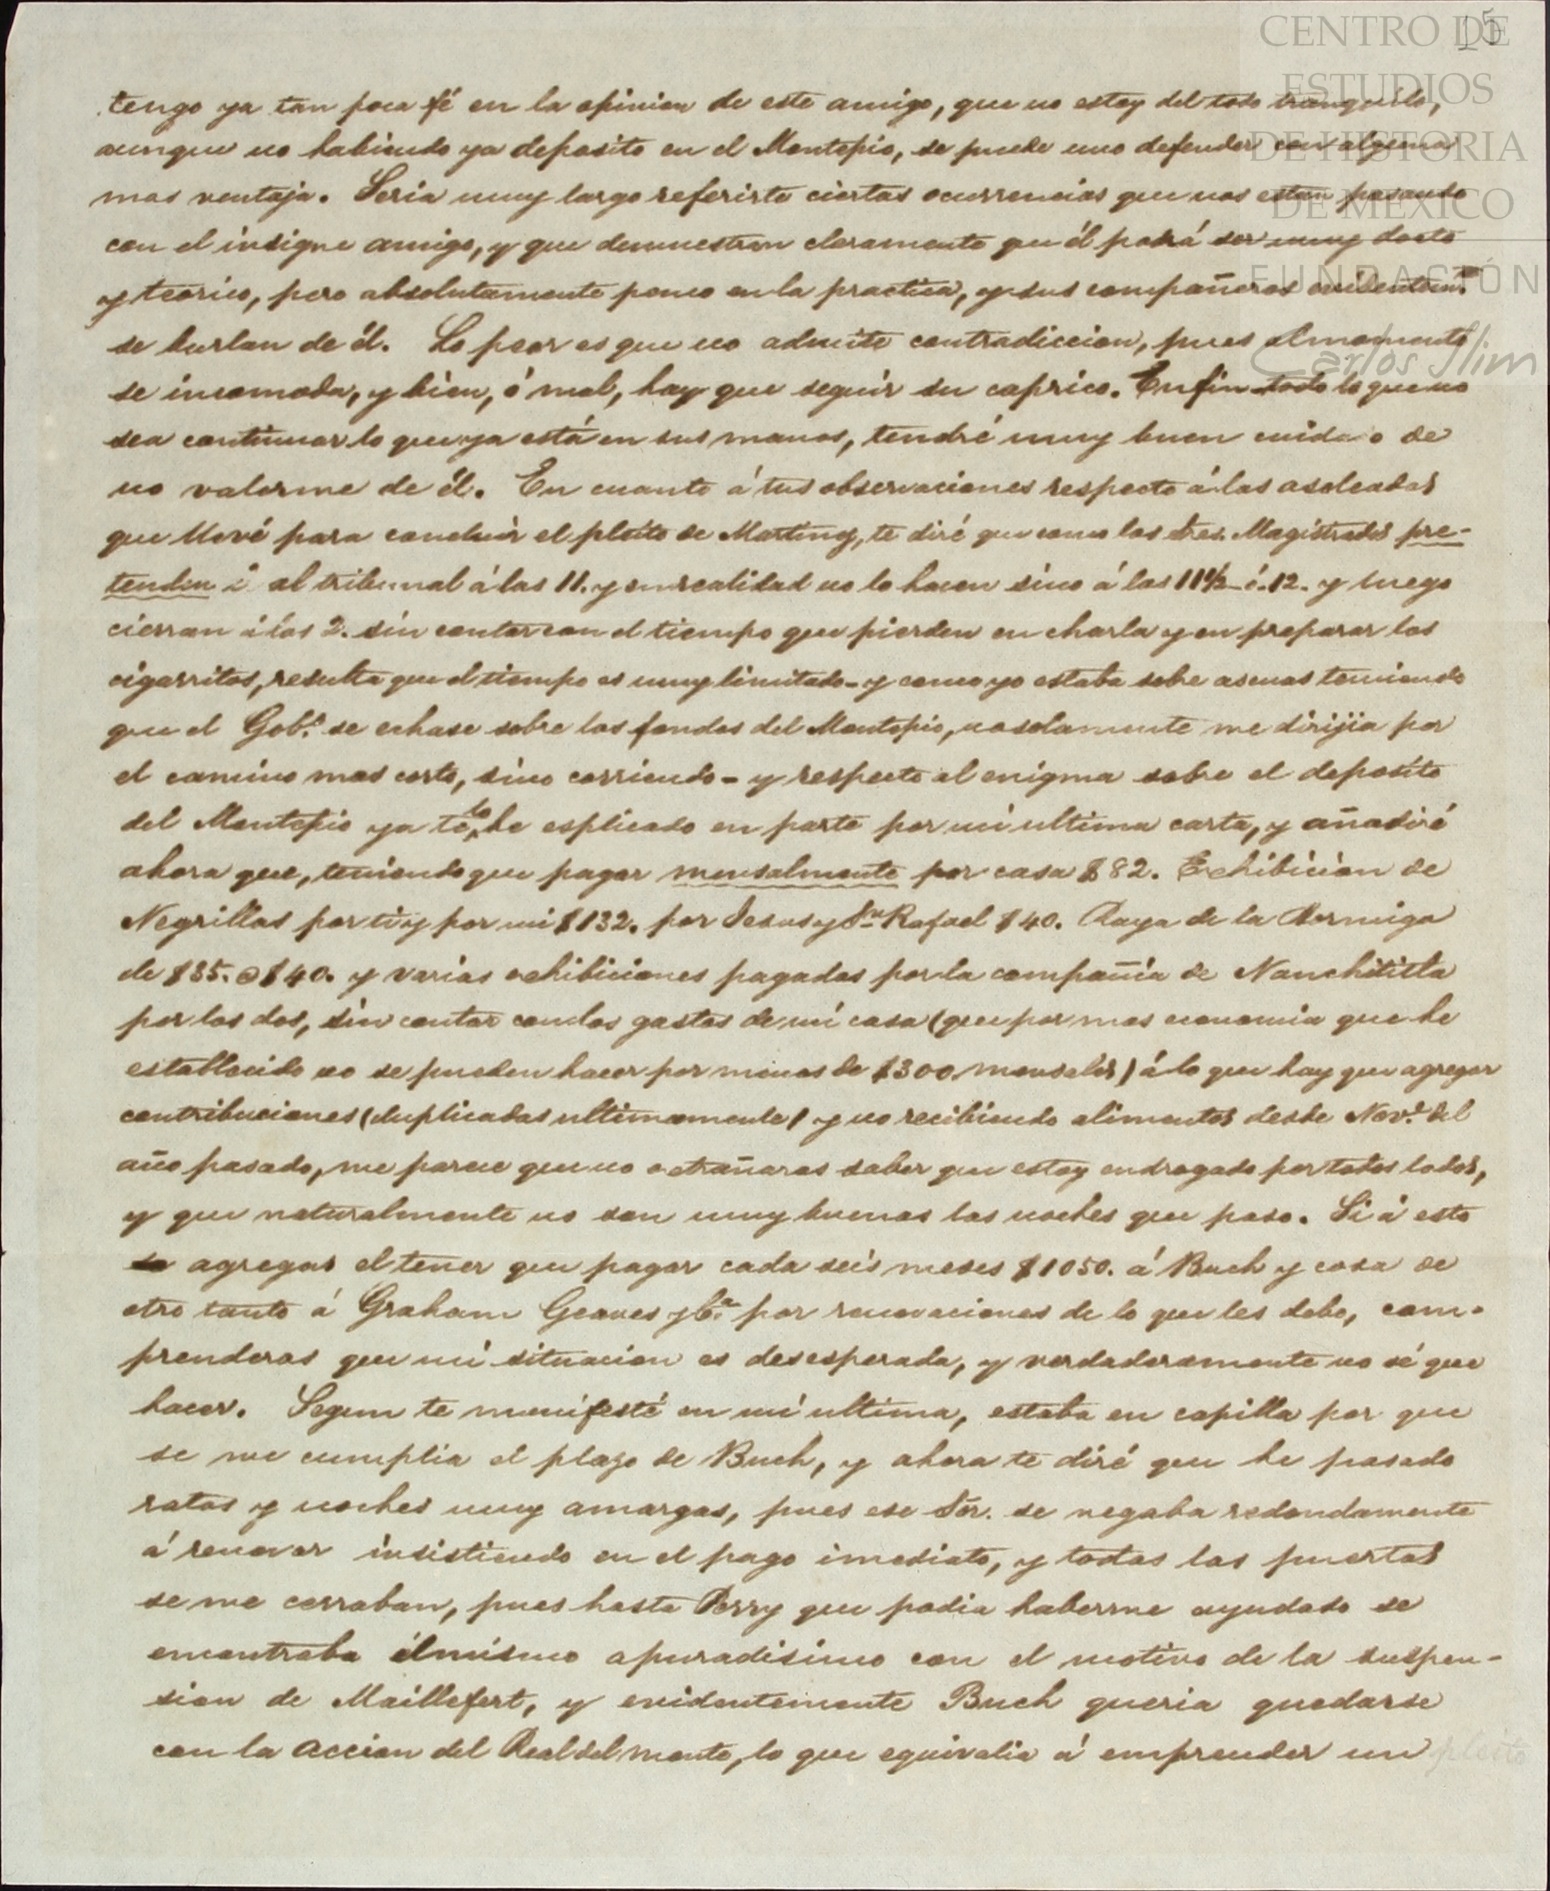 15
CENTRO DE
ESTUDIOS
DE HISTORIA
DE MÉXICO
FUNDACIÓN
Carlos Slim
tengo ya tan poca fé en la opinion de este amigo, que no estoy del todo tranquilo,
aunque no habiendo ya deposito en el Montepio, se puede uno defender con alguna
mas ventaja. Seria muy largo referirte ciertas ocurrencias que nos estan pasando
con el insigne amigo, y que demuestran claramente que él podrá ser muy docto
y teorico, pero absolutamente penco en la practica, y sus compañeros evidentem.te
se burlan de él. Lo peor es que no admite contradiccion, pues al momento
se incomoda, y bien, ó mal, hay que seguir su caprico. En fin todo lo que no
sea continuar lo que ya está en sus manos, tendré muy buen cuidado de
no valerme de él. En cuanto á tus observaciones respecto á las asoleadas
que llevé para concluir el pleito de Martinez, te diré que como los tres Magistrados pre-
tenden ir al tribunal á las 11. y en realidad no lo hacen sino á las 11½ ó 12. y luego
cierran á las 2. sin contar con el tiempo que pierden en charla y en preparar los
cigarritos, resulta que el tiempo es muy limitado - y como yo estaba sobre ascuas temiendo
que el Gob.º se echase sobre los fondos del Montepio, no solamente me dirijia por
el camino mas corto, sino corriendo - y respecto al enigma sobre el deposito
del Montepio ya te lo he esplicado en parte por mi ultima carta, y añadiré
ahora que, teniendo que pagar mensalmente por casa $82. Exhibicion de
Negrillas por ti y por mi $132. por Jesus y Sn Rafael $40. Raya de la Hormiga
de $35. @ $40. y varias exhibiciones pagadas por la compañia de Nanchititla
por los dos, sin contar con los gastos de mi casa (que por mas economia que he
establecido no se pueden hacer por menos de $300 mensales) á lo que hay que agregar
contribuciones (duplicadas ultimamente) y no recibiendo alimentos desde Nov.e del
año pasado, me parece que no estrañaras saber que estoy endrogado por todos lados,
y que naturalmente no son muy buenas las noches que paso. Si á esto
agregas el tener que pagar cada seis meses $1050. á Buch y cosa de
otro tanto á Graham Geaves y Ca. por renovaciones de lo que les debo, com-
prenderas que mi situacion es desesperada, y verdaderamente no sé que
hacer. Segun te manifesté en mi ultima, estaba en capilla por que
se me cumplia el plazo de Buch, y ahora te diré que he pasado
ratos y noches muy amargas, pues ese Sór. se negaba redondamente
á renovar insistiendo en el pago imediato, y todas las puertas
se me cerraban, pues hasta Perry que podia haberme ayudado se
encontraba él mismo apuradisimo con el motivo de la suspen-
sion de Maillefert, y evidentemente Buch queria quedarse
con la accion del Real del monte, lo que equivalia á emprender un pleito